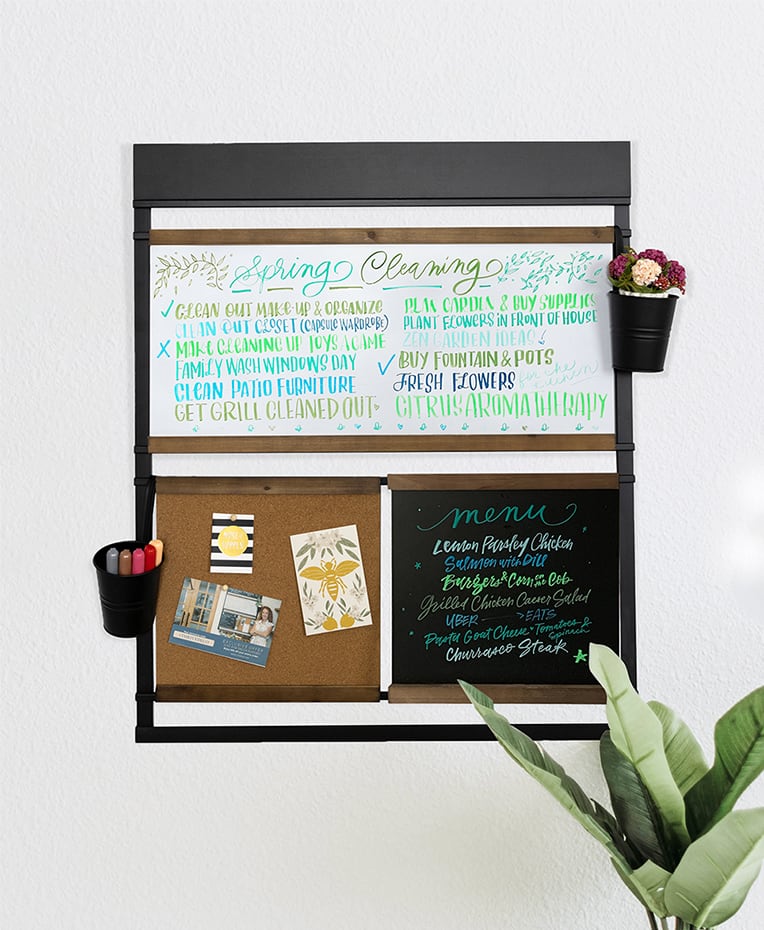 Spring Cleaning
✓ CLEAN OUT MAKE-UP & ORGANIZE
CLEAN OUT CLOSET (CAPSULE WARDROBE)
X MAKE CLEANING UP TOYS A GAME
FAMILY WASH WINDOWS DAY
CLEAN PATIO FURNITURE
GET GRILL CLEANED OUT
PLAN GARDEN & BUY SUPPLIES
PLANT FLOWERS IN FRONT OF HOUSE
ZEN GARDEN IDEAS
✓ BUY FOUNTAIN & POTS
FRESH FLOWERS for the kitchen
CITRUS AROMATHERAPY
menu
Lemon Parsley Chicken
Salmon with Dill
Burgers & Corn on the Cob
Grilled Chicken Caeser Salad
UBER → EATS
Pasta Goat Cheese + Tomatoes & Spinach
Churrasco Steak